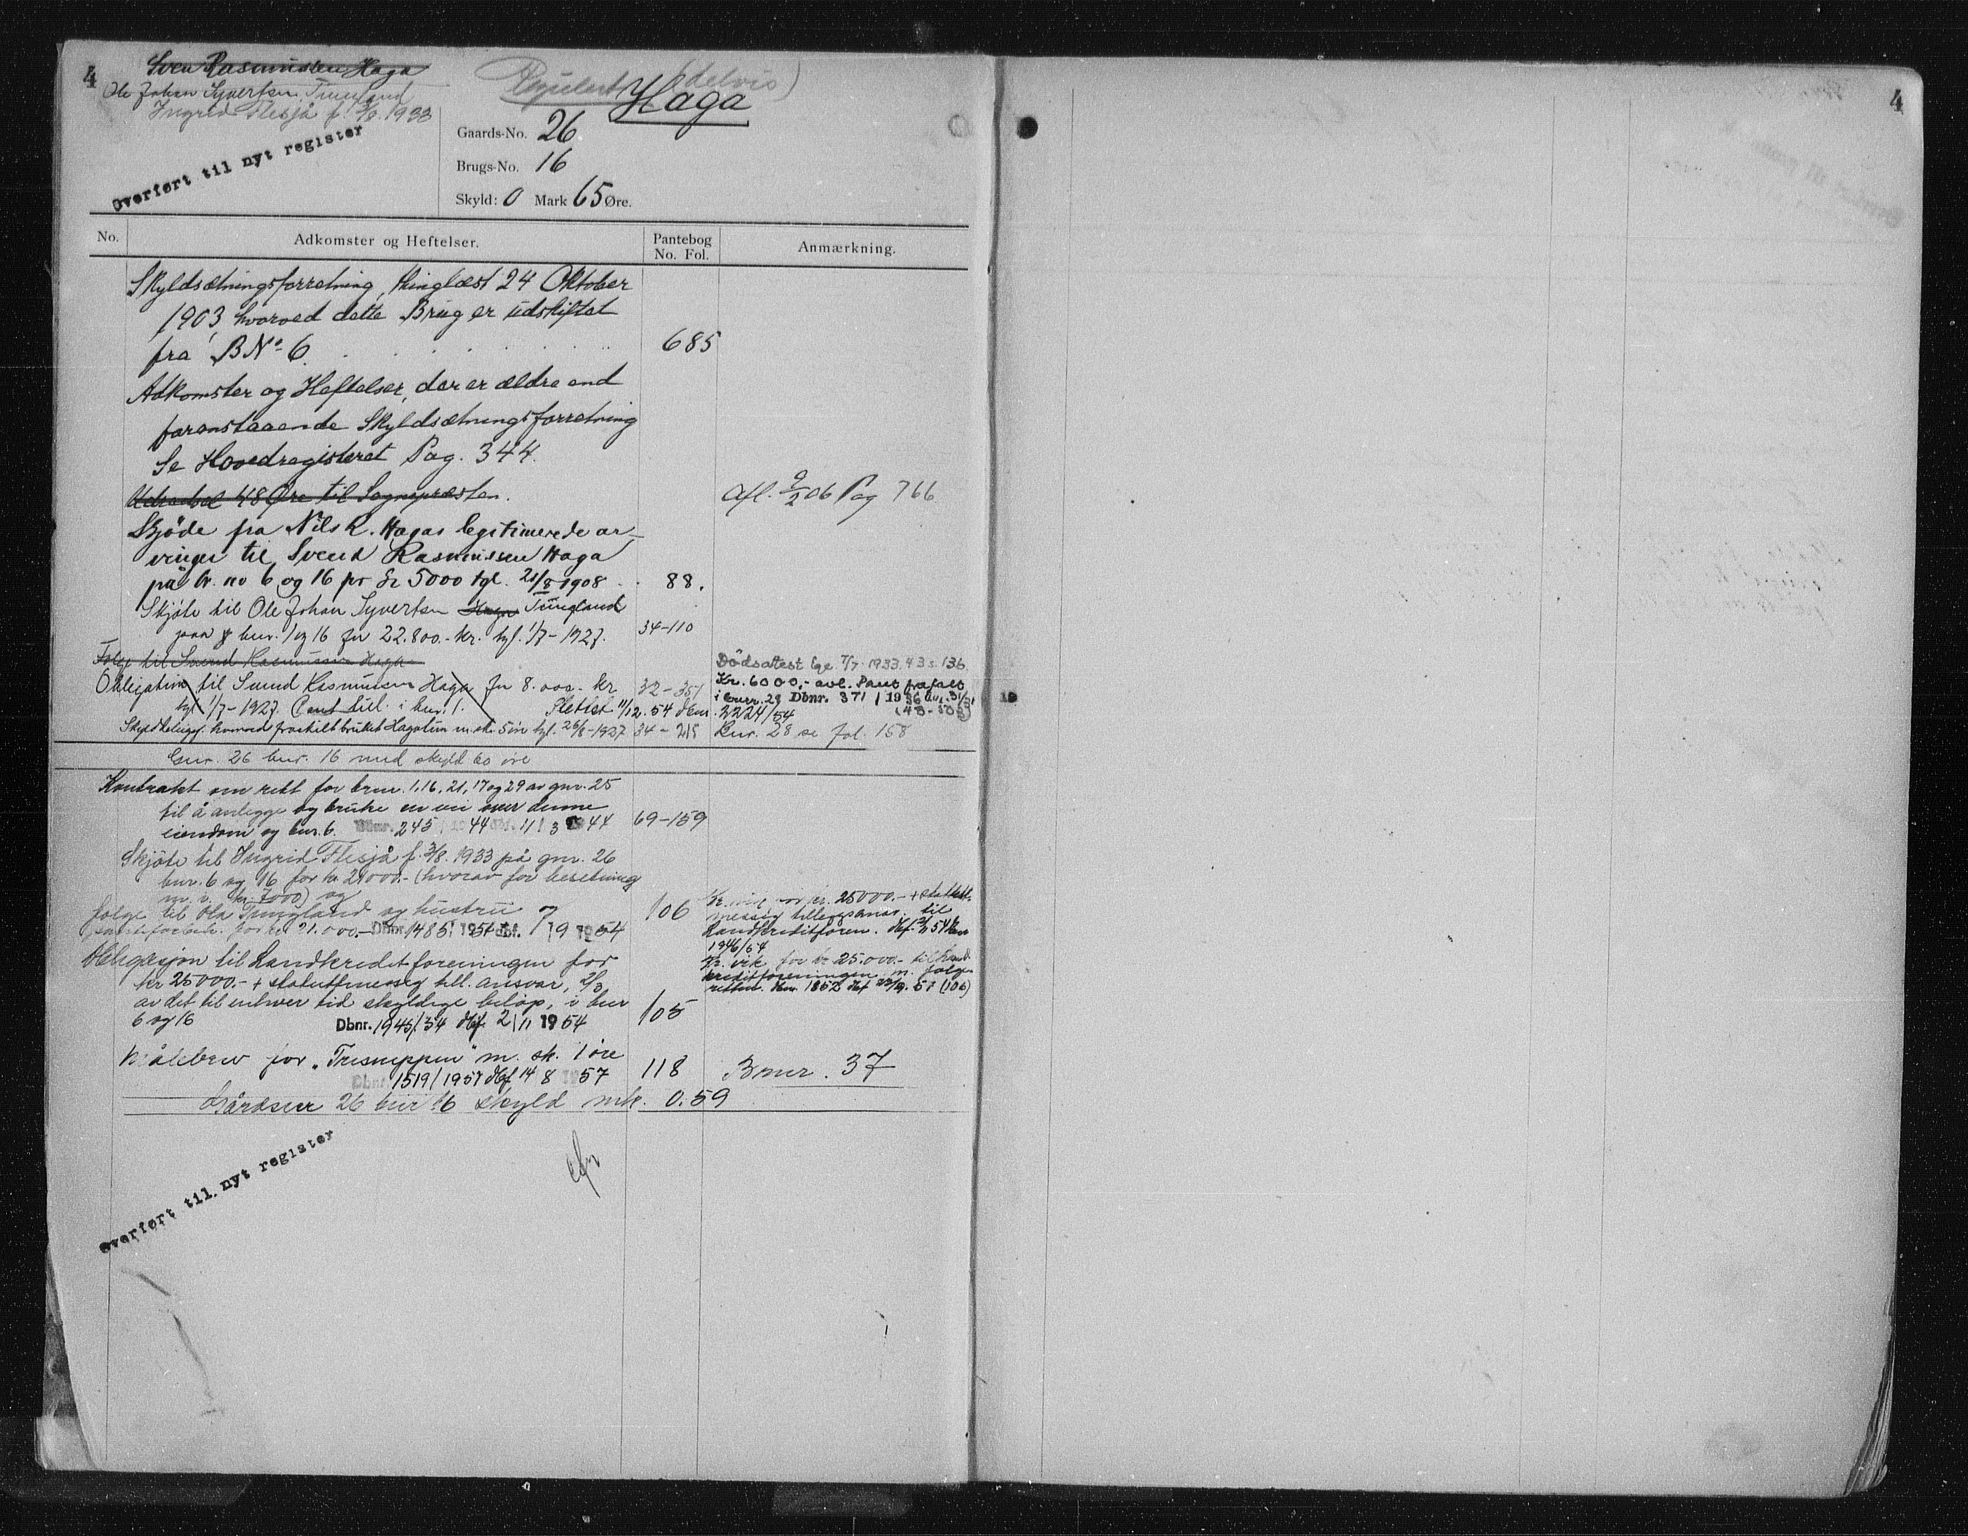 4
Sven Rasmussen Haga
Ole Johan Syvertsen Tungland
Ingrid Flesjå f. 3/8 1933
Overført til nyt register
Regulert (delvis)
Haga
Gaards-No. 26
Brugs-No. 16
Skyld: 0 Mark 65 Øre.
No. Adkomster og Heftelser. Pantebog No. Fol. Anmærkning.
Skyldsætningsforretning, tinglæst 24 Oktober
1903 hvorved dette Brug er udskiftet
fra BNo 6 685
Adkomster og Heftelser, der er ældre end
foranstaaende Skyldsætningsforretning
Se Hovedregisteret Pag. 344.
48 Øre til Sognepræsten. Afl. 9/2 06 Pag 766
Skjøde fra Nils R. Hagas legitimerede ar-
vinger til Svend Rasmussen Haga
på br. no 6 og 16 for kr 5000 tgl. 21/8 1908 88.
Skjøte til Ole Johan Syvertsen Haga Tungland
paa bnr. 1 og 16 for 22.800.- kr. tgl. 1/7-1927. 34-110
Følge til Svend Rasmussen Haga Dödsattest tgl 7/7 1933. 43 s. 136.
Obligation til Svend Rasmussen Haga for 8.000.- kr 32-351 Kr. 6000,- avl. Pant frafalt
tgl 1/7-1927. Pant till. i bnr. 1. Slettet 11/12.54 dbnr. 2224/54
i bnr. 29 Dbnr. 371 / 1936
Skyldelingsf. hvorved fraskilt bruket Hagatun m. sk. 5 öre tgl. 26/8-1927 34-215 Bnr. 28 se fol. 158
Gnr. 26 bnr. 16 med skyld 60 øre
Kontrakt om rett for brnr. 1, 16, 21, 17 og 29 av gnr. 25
til å anlegge og bruke en vei over denne
eiendom og bnr. 6. Dbnr. 245 / 1944 dbf. 11/3 1944 69-159
Skjöte til Ingrid Flesjå f. 3/8. 1933 på gnr. 26
bnr. 6 og 16 for kr. 21000.- (hvorav for besetning
m. v. kr. 7000) og
følge til Ola Tungland og hustru og 106
for kr 21.000.- Dbnr. 1485 / 1954 dbf. 1/9 1954
Kr. vik for kr. 25000.- + statutt-
messig tilleggsansv. til
Landkreditforen. dbf. 2/11 54 dbnr
1946/54
Obligasjon til Landkreditforeningen for
kr 25000.- + statuttmessig till. ansvar, 2/3
av det til enhver tid skyldige beløp, i bnr
6 og 16 Dbnr. 1945 / 54 dbf. 2/11 1954 105
Pr. vik for kr 25.000.- til Land-
kreditforeningen m. følge-
retten. dbnr. 1857 dbf 57 (106)
Målebrev for "Tresnippen" m. sk. 1 øre 118 Bnr. 37
Dbnr. 1519 / 1957 dbf 14 8 1957
Gårdsnr 26 bnr 16 skyld mk. 0.59
Overført til nyt register
4